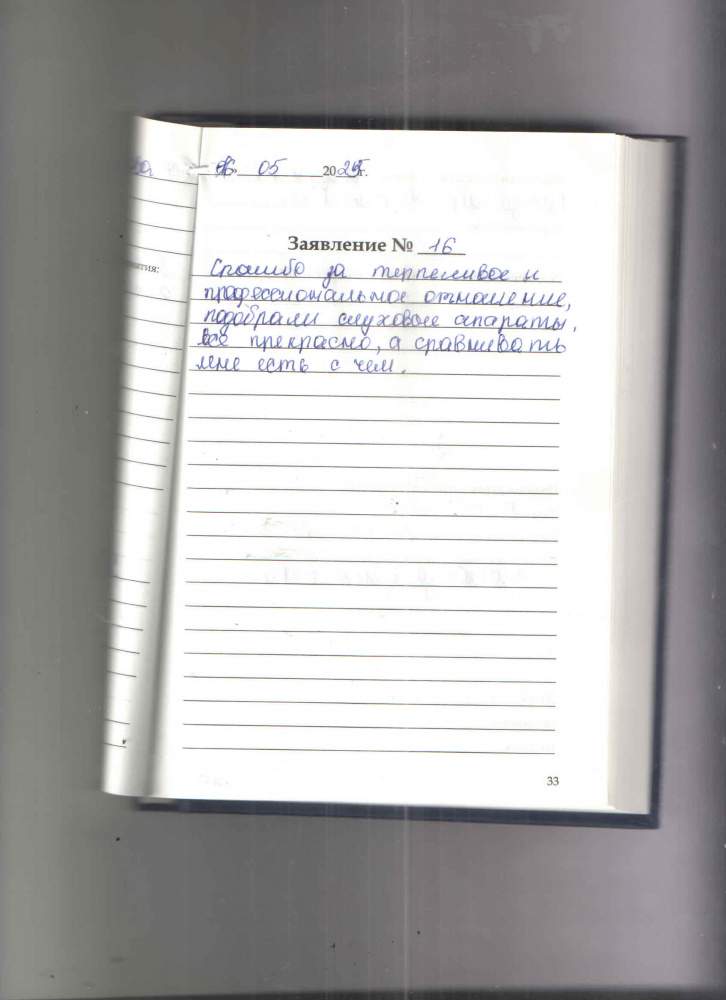 05 2025г.
Заявление № 16
ятия:
Спасибо за терпеливое и
профессиональное отношение,
подобрали слуховые апараты,
всё прекрасно, а сравнивать
мне есть с чем.
33